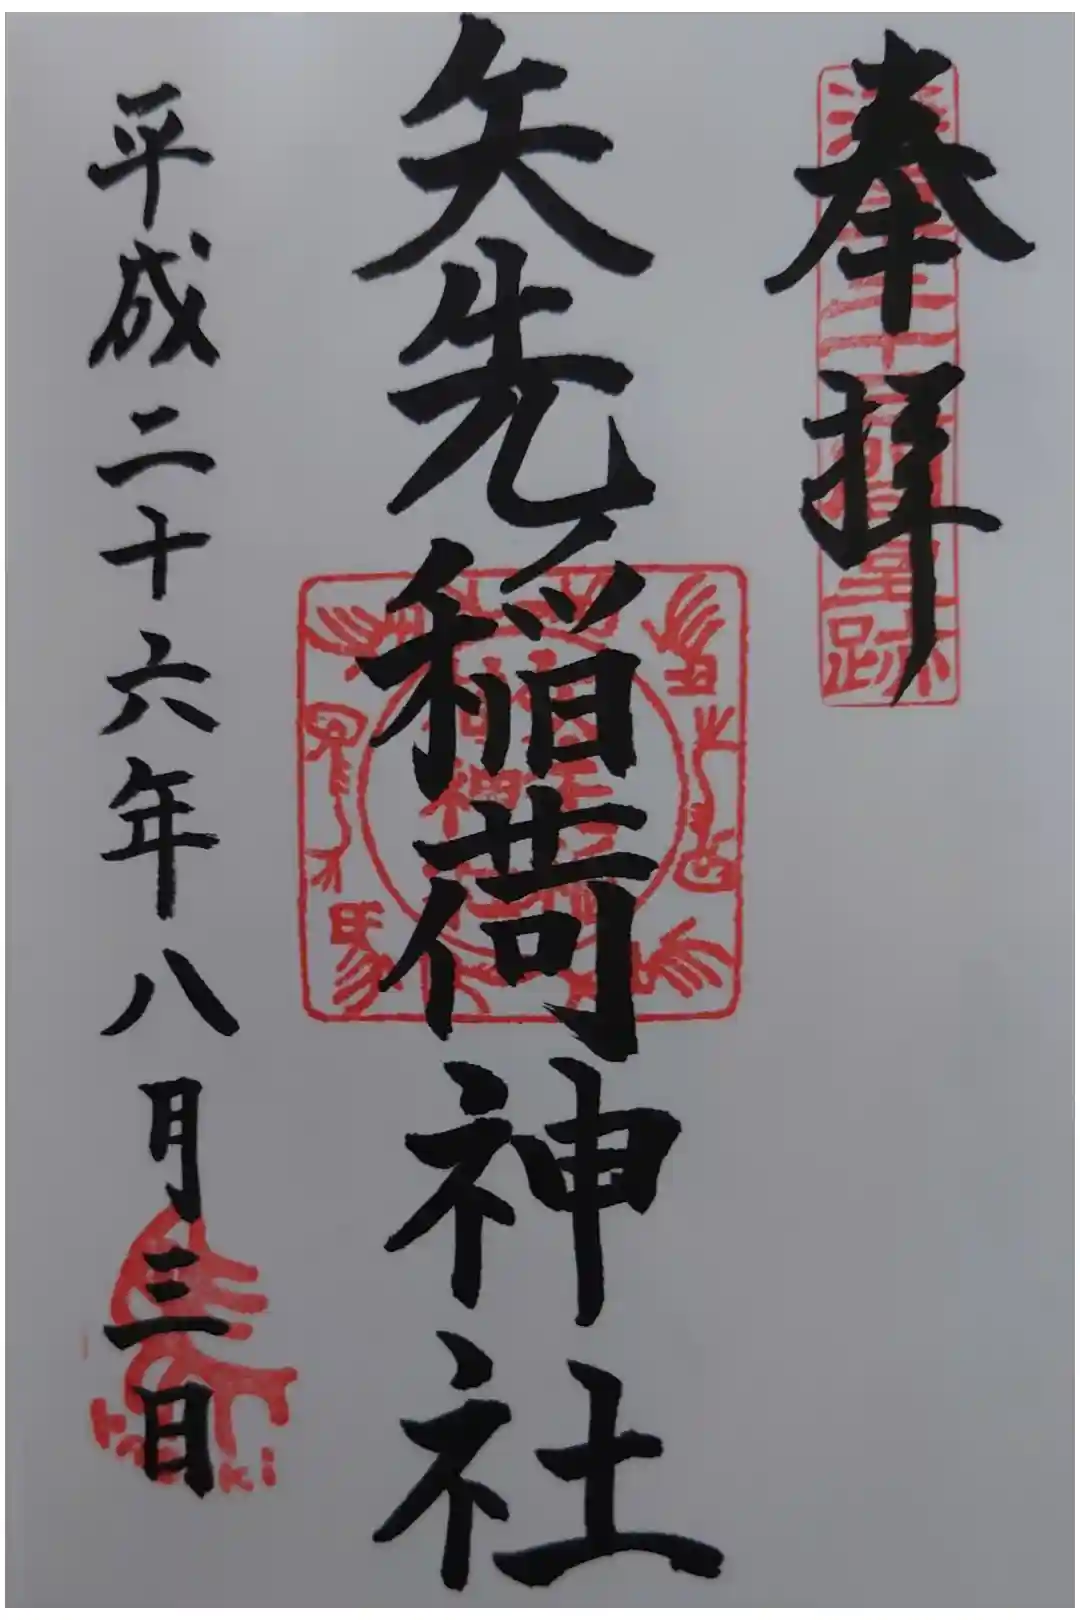 奉拝
矢先稲荷神社
平成二十六年八月三日